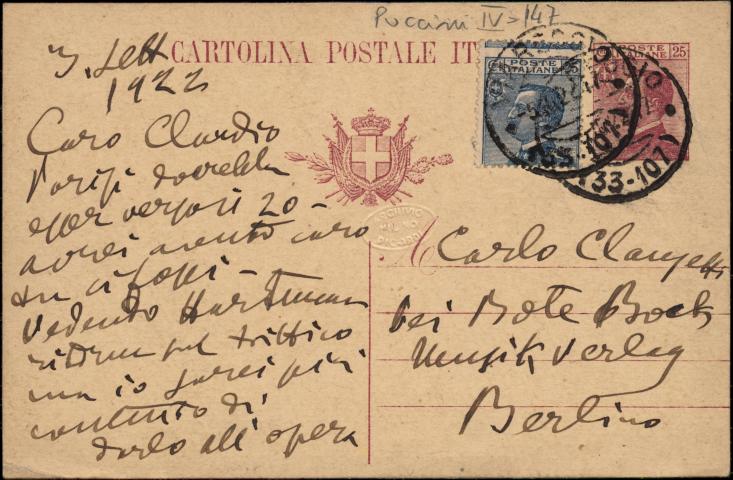 Puccini IV > 147
CARTOLINA POSTALE IT
POSTE
ITALIANE
25
POSTE
ITALIANE
25
VIAREGGIO
(33-107)
(33-107)
3. Sett
1922
Caro Claudio
Parigi dovrebbe
esser verso il 20 -
avrei avuto caro
tu ci fossi -
Vedendo Hartmann
ritorna sul trittico
ma io sarei più
contento di
darlo all'opera
ARCHIVIO
RICORDI
A Carlo Clausetti
bei Bote Bock
Musik Verlag
Berlino